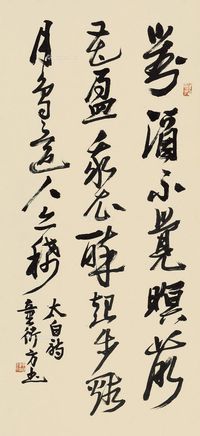 對酒不覺暝落
花盈我衣醉起步谿
月鳥還人亦稀
太白詩
童衍方書